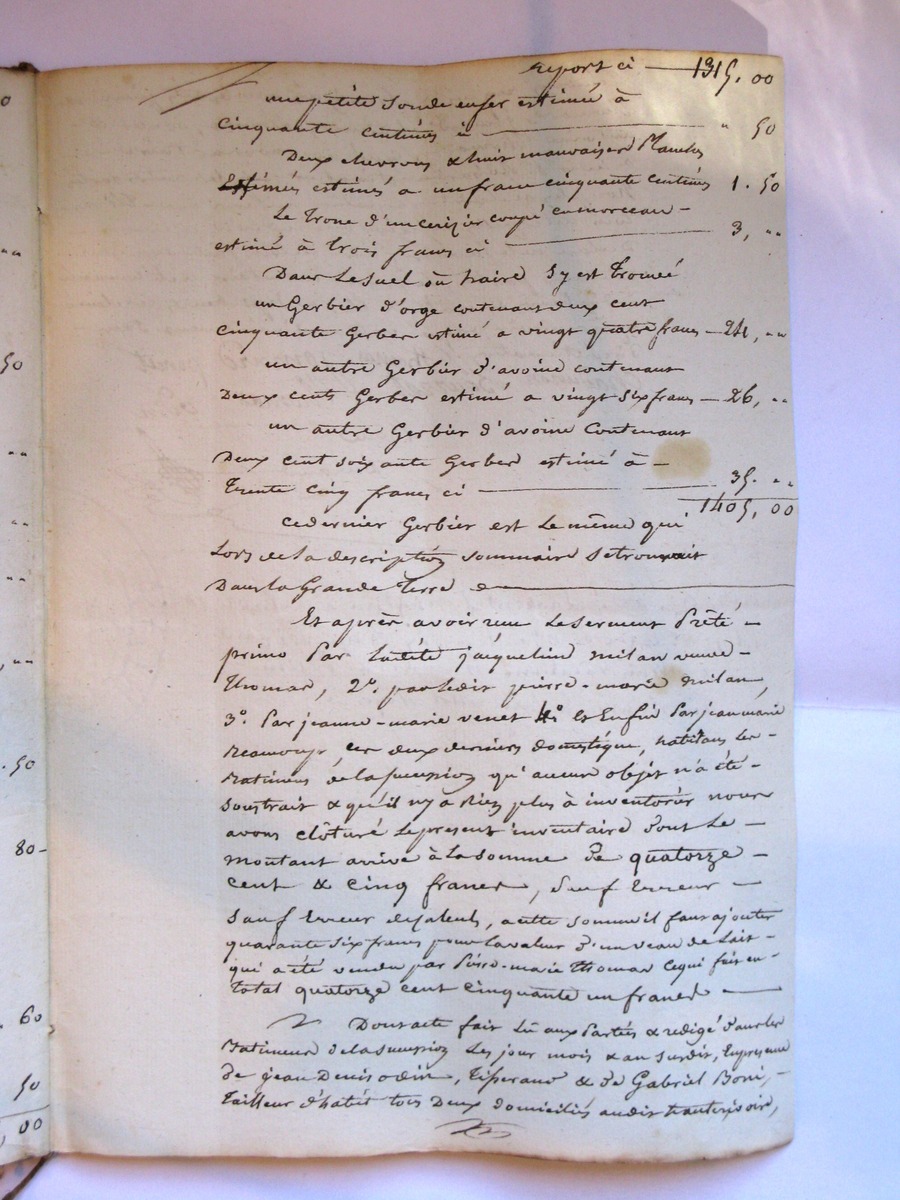 0
50
.50
80-
. 60
50
, 00
report ci — 1315. 00
une petite sonde en fer estimée à
cinquante centimes ci — " 50
Deux chevrons & huit mauvaises Planches
estimés a un franc cinquante centimes 1. 50
Le Tronc d'un cerizier coupé en morceau -
estimé à trois francs ci — 3, ""
Dans Le suel où haire s'y est Trouvé
un Gerbier d'orge contenant deux cent
cinquante Gerbes estimé a vingt quatre francs — 24, ""
un autre Gerbier d'avoine contenant
Deux cents Gerbes estimé a vingt six francs — 26, ""
un autre Gerbier d'avoine Contenant
Deux cent soixante Gerbes estimé à -
Trente cinq francs ci — 35. ""
1405, 00
ce dernier Gerbier est Le même qui
Lors de La description sommaire se trouvait
Dans La Grande Terre
Et après avoir reçu Le serment Prêté -
primo Par jacqueline milan veuve -
Thomas, 2°. par Ledit pierre-marie milan,
3°. Par jeanne-marie venet 4° Et Enfin Par jean marie
ces deux derniers domestique, habitans Les -
Batimens de la succession qu'aucun objet n'a été -
soustrait & qu'il n'y a Rien plus à inventorier nous
avons clôturé Le present inventaire dont Le -
montant arrive à La somme De quatorze -
cent & cinq francs, sauf Erreur -
sauf Erreur de calculs, a cette somme il faut ajouter
quarante six francs pour La valeur d'un veau de Lait -
qui a été vendu par Pierre-marie Thomas Ce qui fait en -
Total quatorze cent cinquante un francs —
Dont acte fait Lû aux Parties & redigé dans Les
Batimens de La succession Les jour mois & an susdit, En presence
de jean Denis odin, Tisserand & de Gabriel Boni, -
Tailleur d'habit tous Deux domiciliés audit